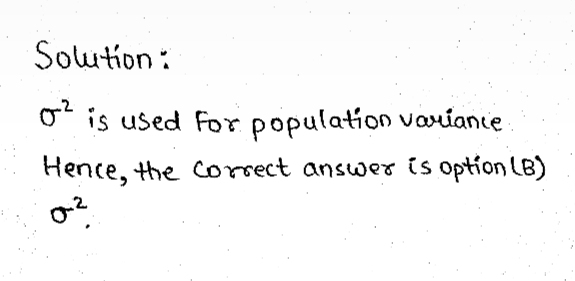 Solution:
σ² is used for population variance.
Hence, the correct answer is option (B)
σ².